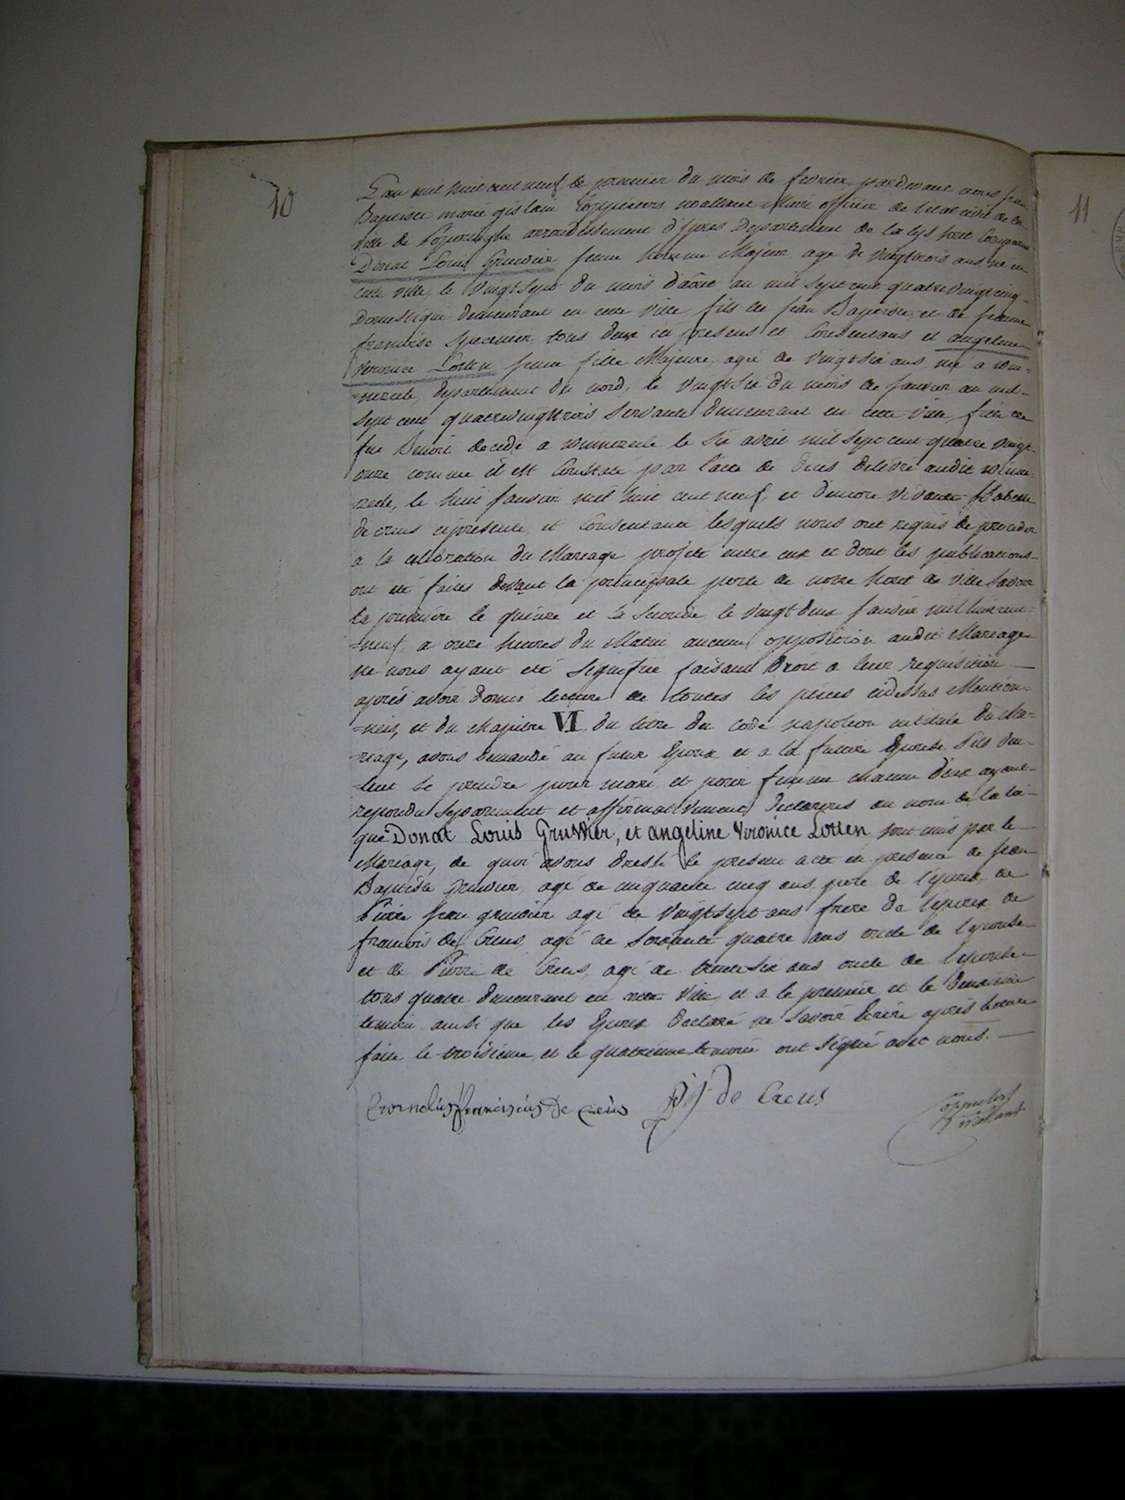 10
11
L'an mil huit cent neuf, le premier du mois de fevrier, pardevant nous jean
Baptiste marie gislain Coppieters wallant Maire officier de l'etat civil de la
ville de Poperinghe arrondissement d'ypres Departement de la lys sont comparus
Donat Louis Gruwier jeune homme Majeur agé de vingttrois ans né en
cette ville, le vingtsept du mois d'aôut an mil septcent quatrevingtcinq
Domestique demeurant en cette ville fils de jean Baptiste, et de jeanne
françoise tous deux ici presens et Consentans et angeline
veronice Lotten jeune fille Majeure agée de vingtsix ans, née a win-
nezeele, departement du nord, le vingtsix du mois de janvier an mil
sept cent quatrevingttrois servante demeurant en cette ville, fille de
feu Benoit decedé a winnezeele le six avril mil sept cent quatre vingt
onze comme il est Constaté par l'acte de deces delivré audit winne-
zeele, le huit janvier mil huit cent neuf, et d'encore vivante Isabelle
de creus cipresente et Consentante lesquels nous ont requis de proceder
a la celebration du Mariage projetté entre eux et dont les publications
ont été faites devant la principale porte de notre hotel de ville savoir
la premiere le quinze et la seconde le vingtdeux janvier mil huit cent
neuf, a onze heures du Matin aucune opposition audit Mariage
ne nous ayant été signifiée faisant Droit a leur requisition
aprés avoir donné lecture de toutes les pieces cidessus Mention-
nées, et du chapitre VI du titre du code napoleon intitulé du Ma-
riage, avons demandé au futur Epoux et a la future Epouse s'ils veu-
lent se prendre pour mari et pour femme chacun d'eux ayant
repondu separement et affirmativement, Declarons au nom de la loi
que Donat Louis Gruwier, et angeline Veronice Lotten sont unis par le
Mariage, de quoi avons dressé le present acte en presence de jean
Baptiste Gruwier, agé de cinquante cinq ans pere de l'epoux de
Pierre jean gruwier agé de vingtsept ans frere de l'epoux de
francois de Creus, agé de soixante quatre ans oncle de l'epouse
et de Pierre de Creus, agé de trentesix ans oncle de l'epouse
tous quatre demeurant en cette ville et a le premier et le deuxieme
temoin ainsi que les Epoux Declaré ne savoir Ecrire aprés lecture
faite le troisieme et le quatrieme temoin ont signé avec nous.
Cornelius franciscus De Creus
P: J: de Creus
Coppieters
wallant